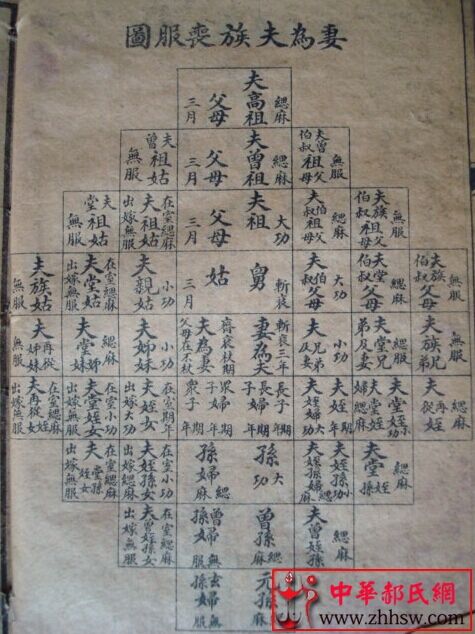 妻為夫族喪服圖
緦麻
夫高祖
父母
三月
無服
夫曾祖父
伯叔父母
緦麻
夫曾祖
父母
三月
夫
曾祖姑
無服
無服
夫族祖父
伯叔父母
緦麻
夫伯祖父
叔父母
大功
夫祖
父母
三月
在室緦麻
夫祖姑
出嫁無服
夫
堂祖姑
無服
無服
夫族
伯叔父母
緦麻
夫堂
伯叔父母
大功
夫伯
叔父母
斬衰
舅
姑
三月
小功
夫親姑
在室緦麻
夫堂姑
出嫁無服
夫族姑
無服
無服
夫族兄
弟
緦服
夫堂兄
弟及妻
小功
夫兄弟
及妻
斬衰三年
妻為夫
齊衰杖期
夫為妻
父母在不杖
小功
夫姊妹
緦麻
夫堂姊
妹
夫再從
姊妹
無服
緦麻
夫再
從姪
夫堂姪小功
夫堂姪
婦緦麻
夫姪期年
夫姪婦大功
長子期年
長子婦期年
眾子期年
眾子婦
在室期年
夫姪女
出嫁大功
在室小功
夫堂姪女
出嫁緦麻
在室緦麻
夫再從姪女
出嫁無服
緦麻
夫堂姪
孫
夫姪孫小功
夫姪孫婦緦麻
大功
孫
孫婦
緦麻
在室小功
夫姪孫女
出嫁緦麻
在室緦麻
夫堂姪孫女
出嫁無服
緦麻
夫曾姪孫
曾孫
緦麻
曾孫婦
無服
在室緦麻
夫曾姪孫女
出嫁無服
元孫
緦麻
玄孫婦
無服
中華郝氏網
www.zhhsw.com